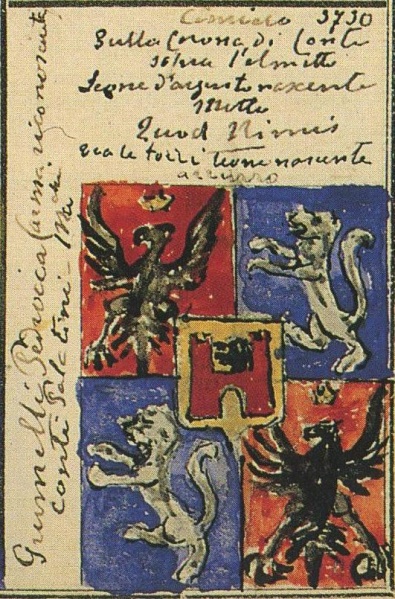 Cimiero 3730
Sulla Corona di Conte
sopra l'elmetto
Leone d'argento nascente
Motto
Quod Nimis
tra le torri leone nascente
azzurro
Grumelli Pedrocca (arma riconoscente
conti Palatini -